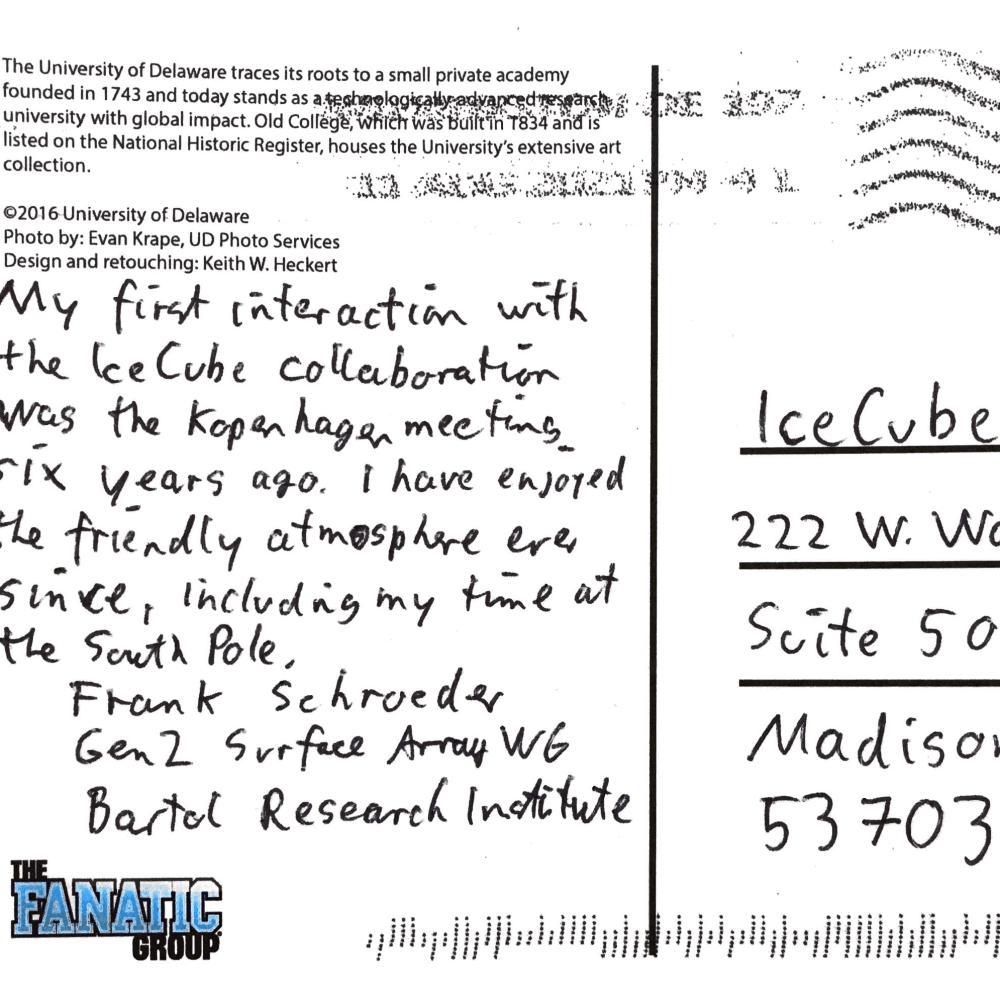 The University of Delaware traces its roots to a small private academy
founded in 1743 and today stands as a technologically-advanced research
university with global impact. Old College, which was built in 1834 and is
listed on the National Historic Register, houses the University's extensive art
collection.
©2016 University of Delaware
Photo by: Evan Krape, UD Photo Services
Design and retouching: Keith W. Heckert
My first interaction with
the IceCube collaboration
was the Kopenhagen meeting
six years ago. I have enjoyed
the friendly atmosphere ever
since, including my time at
the South Pole.
Frank Schroeder
Gen2 Surface Array WG
Bartol Research Institute
THE
FANATIC
GROUP
DE 197
PM 4 L
IceCube
222 W. Wa
Suite 50
Madison
53703